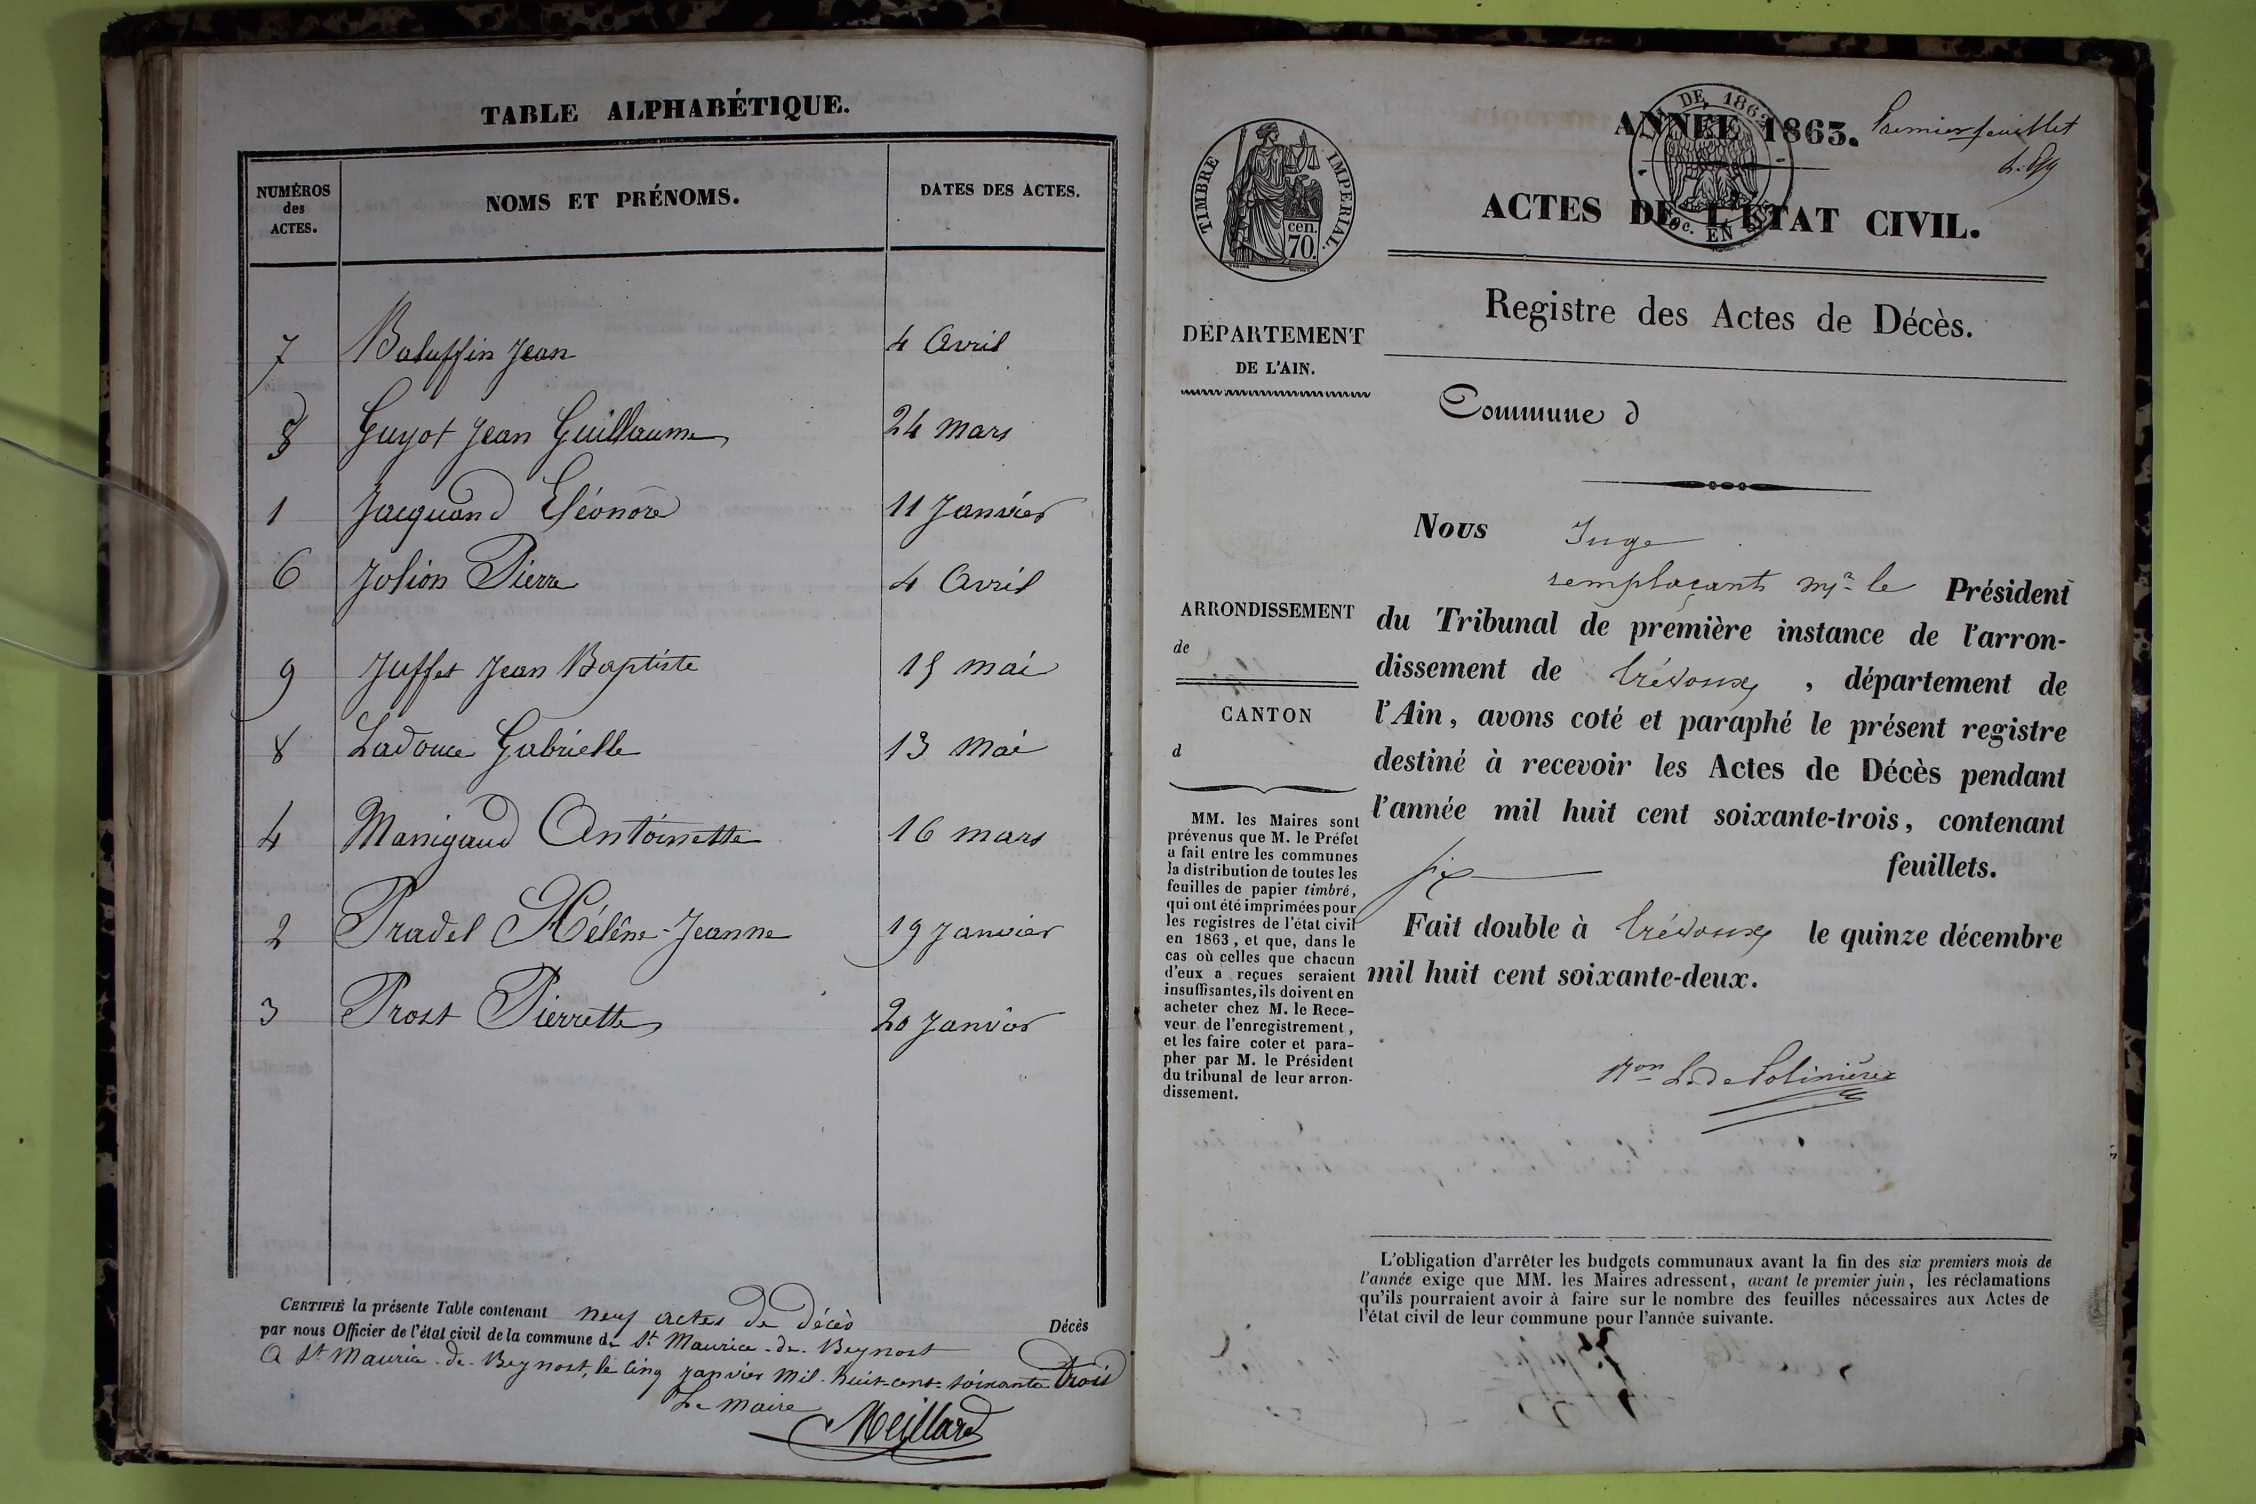 TABLE ALPHABÉTIQUE.
NUMÉROS des ACTES. NOMS ET PRÉNOMS. DATES DES ACTES.
7 Baluffin Jean 4 Avril
Guyot Jean Guillaume 24 Mars
1 Jacquand Eléonore 11 Janvier
6 Jolion Pierre 4 Avril
9 Juffet Jean Baptiste 15 Mai
8 Ladouce Gabrielle 13 Mai
4 Manigaud Antoinette 16 mars
2 Pradel Hélène-Jeanne 19 Janvier
3 Prost Pierrette 20 Janvier
CERTIFIÉ la présente Table contenant neuf actes de décès Décès
par nous Officier de l'état civil de la commune de St Maurice-de-Beynost
A St Maurice-de-Beynost, le cinq Janvier mil-huit-cent-soixante trois
Le Maire
Meillard
TIMBRE IMPERIAL.
cen.
70.
DE 1862
EN
ANNÉE 1863. Premier feuillet
ACTES DE L'ÉTAT CIVIL.
Registre des Actes de Décès.
DÉPARTEMENT
DE L'AIN.
Commune d
ARRONDISSEMENT
de
CANTON
d
MM. les Maires sont
prévenus que M. le Préfet
a fait entre les communes
la distribution de toutes les
feuilles de papier timbré,
qui ont été imprimées pour
les registres de l'état civil
en 1863, et que, dans le
cas où celles que chacun
d'eux a reçues seraient
insuffisantes, ils doivent en
acheter chez M. le Rece-
veur de l'enregistrement,
et les faire coter et para-
pher par M. le Président
du tribunal de leur arron-
dissement.
Nous Juge
remplaçant Mr le Président
du Tribunal de première instance de l'arron-
dissement de Trévoux, département de
l'Ain, avons coté et paraphé le présent registre
destiné à recevoir les Actes de Décès pendant
l'année mil huit cent soixante-trois, contenant
six feuillets.
Fait double à Trévoux le quinze décembre
mil huit cent soixante-deux.
Bon L. de Polinière
L'obligation d'arrêter les budgets communaux avant la fin des six premiers mois de
l'année exige que MM. les Maires adressent, avant le premier juin, les réclamations
qu'ils pourraient avoir à faire sur le nombre des feuilles nécessaires aux Actes de
l'état civil de leur commune pour l'année suivante.